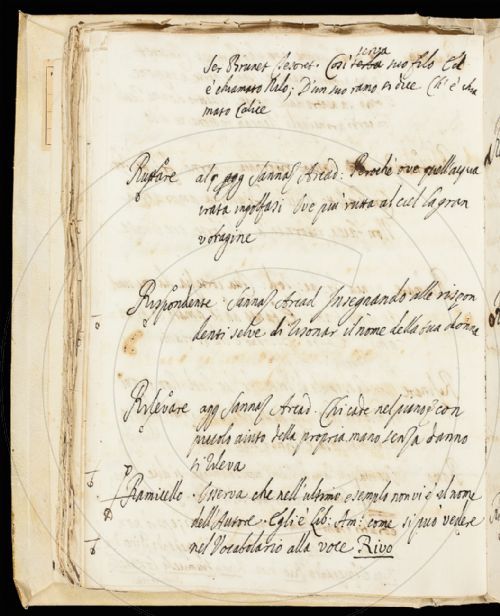 Ser Brunet Tesoret. Così serba senza suo filo Ed
è chiamato Nilo; D'un suo ramo si dice Ch' è chia
mato Calice
Ruttare alg agg Sannaz Arcad: Peroché ove quell'acqua
irata ingolfasi Ive più rutta al ciel la gran
voragine
Rispondente Sannaz Arcad Insegnando alle rispon
denti selve di risonar il nome della sua donna
Rilevare agg Sannaz Arcad. Chi cade nel piano, con
piccolo aiuto della propria mano senza danno
si rileva
Ramicello. Osserva che nell'ultimo esemplo non vi è il nome
dell'Autore. Egli è Lib: Am: come si può vedere
nel Vocabolario alla voce Rivo